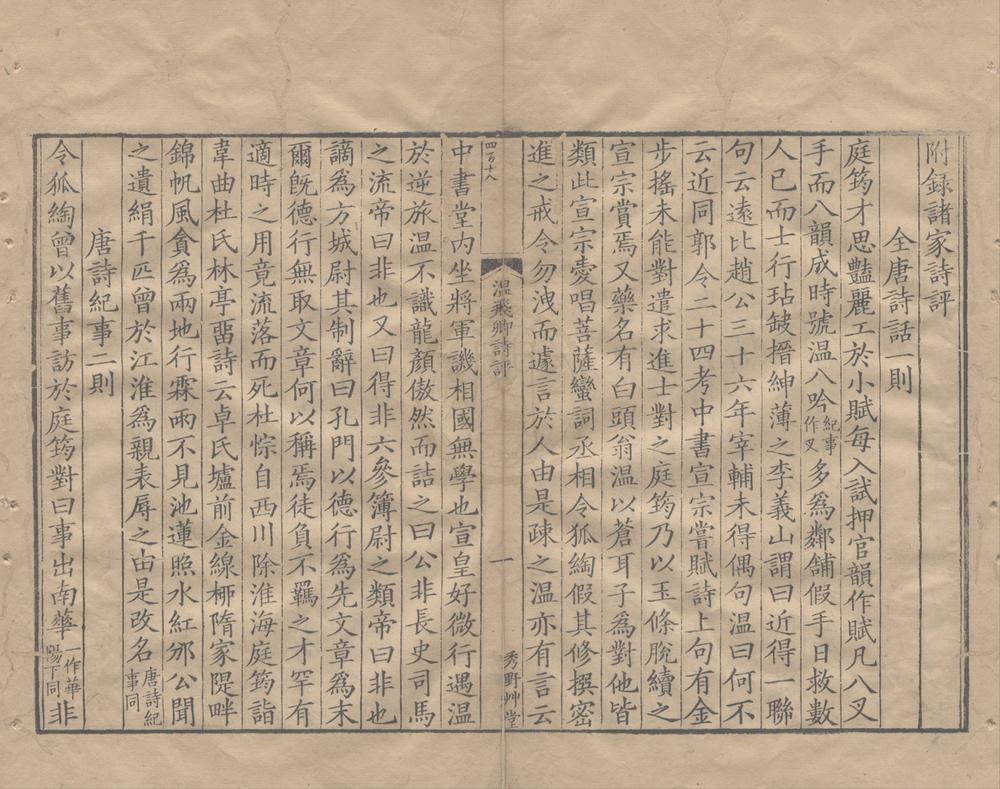 附録諸家詩評
全唐詩話一則
庭筠才思豔麗工於小賦每入試押官韻作賦凡八叉
手而八韻成時號温八吟紀事作叉多爲鄰舖假手日救數
人已而士行玷缺搢紳薄之李義山謂曰近得一聯
句云遠比趙公三十六年宰輔未得偶句温曰何不
云近同郭令二十四考中書宣宗嘗賦詩上句有金
步搖未能對遣求進士對之庭筠乃以玉條脫續之
宣宗賞焉又藥名有白頭翁温以蒼耳子爲對他皆
類此宣宗愛唱菩薩蠻詞丞相令狐綯假其修撰密
進之戒令勿洩而遽言於人由是疎之温亦有言云
四百十八
温飛卿詩評
一
秀野艸堂
中書堂内坐將軍譏相國無學也宣皇好微行遇温
於逆旅温不識龍顏傲然而詰之曰公非長史司馬
之流帝曰非也又曰得非六參簿尉之類帝曰非也
謫爲方城尉其制辭曰孔門以德行爲先文章爲末
爾旣德行無取文章何以稱焉徒負不羈之才罕有
適時之用竟流落而死杜悰自西川除淮海庭筠詣
韋曲杜氏林亭畱詩云卓氏壚前金線桺隋家隄畔
錦帆風貪爲兩地行霖雨不見池蓮照水紅邠公聞
之遺絹千匹曾於江淮爲親表辱之由是改名唐詩紀事同
唐詩紀事二則
令狐綯曾以舊事訪於庭筠對曰事出南華一作華陽下同非